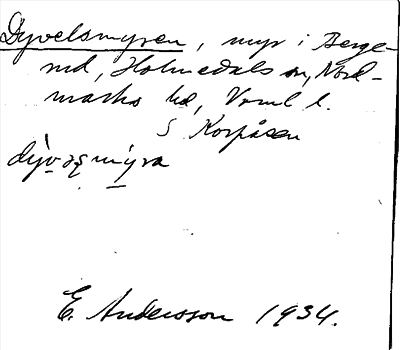 Dyvelsmyren, myr i Berga-
ma, Holmedals sn, Nord-
marks hd, Vrml l.
S Korpåsen
dy̍vəsmy̍ra
E. Andersson 1934.